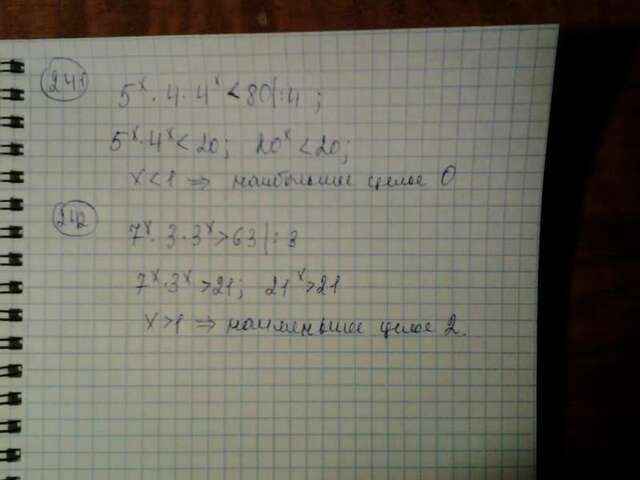 241
5ˣ · 4 · 4ˣ < 80 |:4 ;
5ˣ · 4ˣ < 20; 20ˣ < 20;
x < 1 ⇒ наибольшее целое 0
242
7ˣ · 3 · 3ˣ > 63 |: 3
7ˣ · 3ˣ > 21; 21ˣ > 21
x > 1 ⇒ наименьшее целое 2.